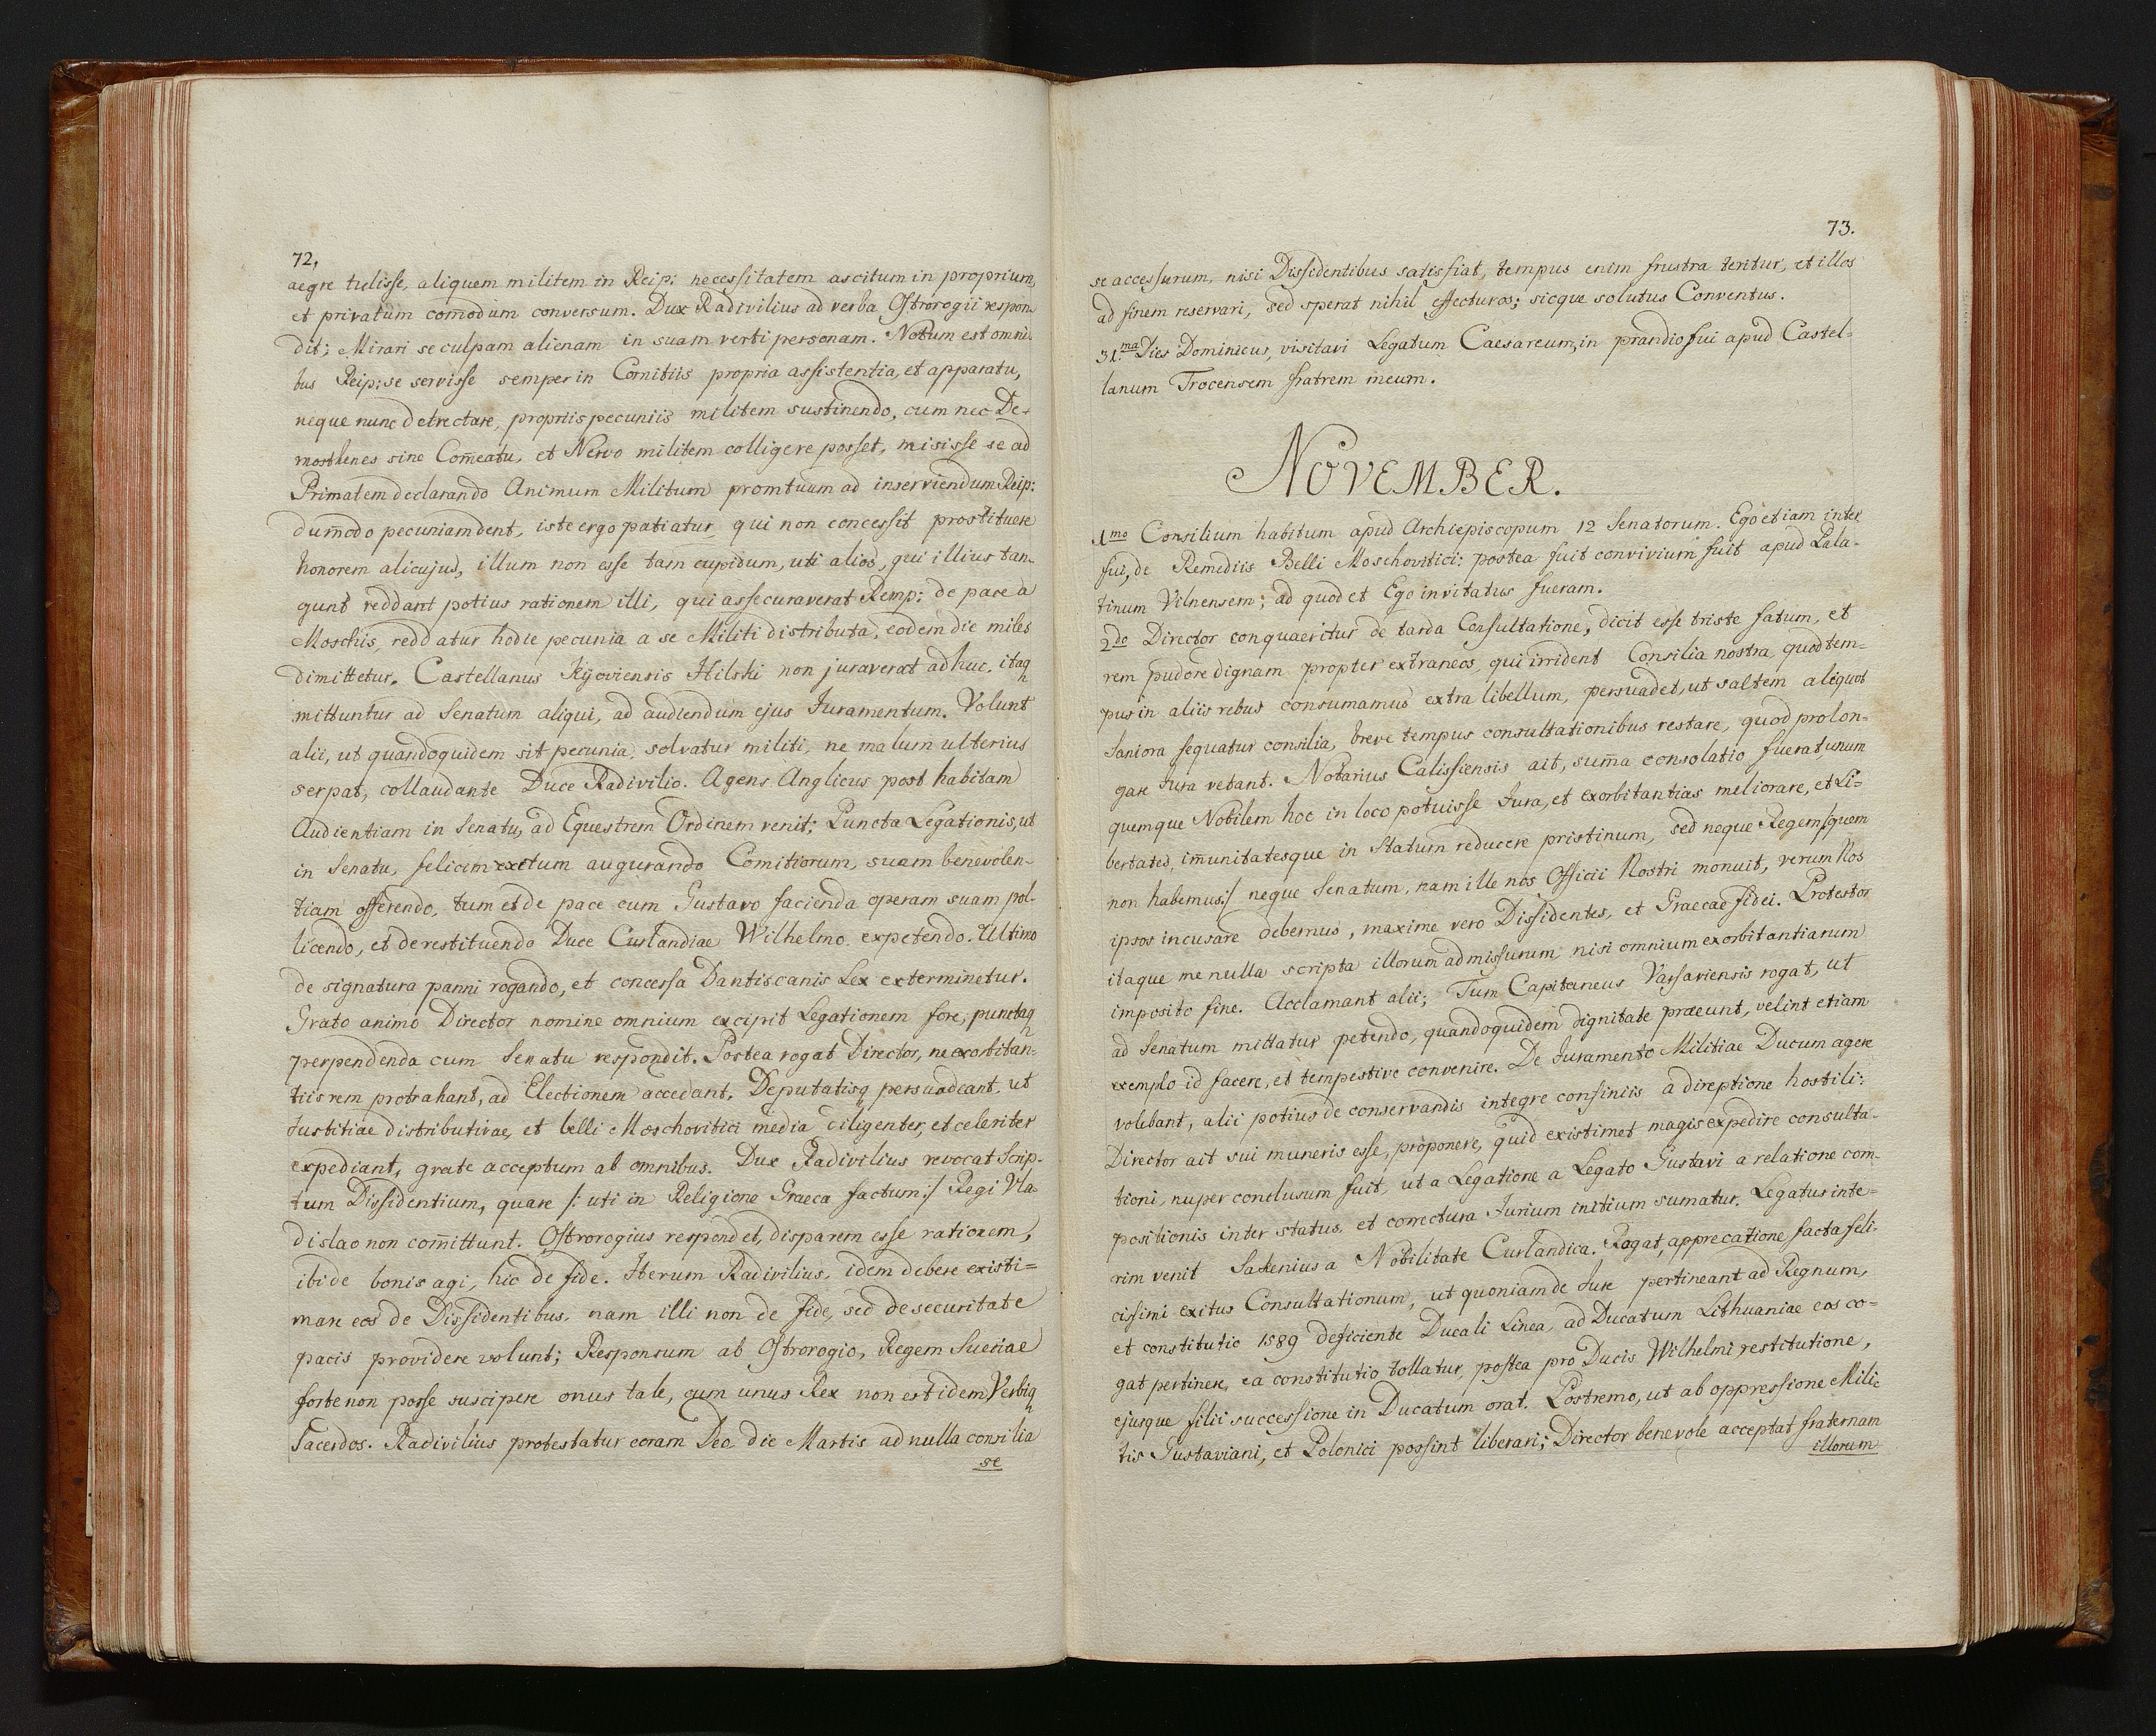 72.
aegre tulisse, aliquem militem in Reip: necessitatem ascitum in proprium,
et privatum com̄odum conversum. Dux Radivilius ad verba Ostrorogii respon-
dit; Mirari se culpam alienam in suam verti personam. Notum est omni-
bus Reip: se servisse semper in Comitiis propria assistentia, et apparatu,
neque nunc detrectare, propriis pecuniis militem sustinendo, cum nec De-
mosthenes sine Com̄eatu, et Nervo militem colligere posset, misisse se ad
Primatem declarando Animum Militum promtuum ad inserviendum Reip:
dum̄odo pecuniam dent, iste ergo patiatur, qui non concessit prostituere
honorem alicujus, illum non esse tam cupidum, uti alios, qui illius tan-
gunt reddant potius rationem illi, qui assecuraverat Remp: de pace a
Moschis, reddatur hodie pecunia a se Militi distributa, eodem die miles
dimittetur. Castellanus Kijoviensis Hilski non juraverat adhuc, itaq
mittuntur ad Senatum aliqui, ad audiendum ejus Juramentum. Volunt
alii, ut quandoquidem sit pecunia, solvatur militi, ne malum ulterius
serpat, collaudante Duce Radivilio. Agens Anglicus post habitam
Audientiam in Senatu, ad Equestrem Ordinem venit; Puncta Legationis, ut
in Senatu, felicem exitum augurando Comitiorum, suam benevolen-
tiam offerendo, tum et de pace cum Gustavo facienda operam suam pol-
licendo, et de restituendo Duce Curlandiae Wilhelmo expetendo. Ultimo
de signatura panni rogando, et concessa Dantiscanis Lex exterminetur.
Grato animo Director nomine omnium excipit Legationem fore, punctaq
perpendenda cum Senatu respondit. Postea rogat Director, ne exorbitan-
tiis rem protrahant, ad Electionem accedant, Deputatisq persuadeant, ut
Justitiae distributivae, et belli Moschovitici media diligenter, et celeriter
expediant, grate acceptum ab omnibus. Dux Radivilius revocat Scrip-
tum Dissidentium, quare /: uti in Religione Graeca factum :/ Regi Vla-
dislao non com̄ittunt. Ostrorogius respondet, disparem esse rationem,
ibi de bonis agi, hic de fide. Iterum Radivilius, idem debere existi=
mare eos de Dissidentibus, nam illi non de fide, sed de securitate
pacis providere volunt; Responsum ab Ostrorogio, Regem Sueciae
forte non posse suscipere onus tale, cum unus Rex non est idem Verbiq
Sacerdos. Radivilius protestatur coram Deo die Martis ad nulla consilia
se
73.
se accessurum, nisi Dissidentibus satisfiat, tempus enim frustra teritur, et illos
ad finem reservari, sed sperat nihil effecturos; sicque solutus Conventus.
31.ma Dies Dominicus, visitavi Legatum Caesareum, in prandio fui apud Castel-
lanum Trocensem fratrem meum.
NOVEMBER.
1mo Consilium habitum apud Archiepiscopum 12 Senatorum. Ego etiam inter
fui, de Remediis Belli Moschovitici: postea fuit convivium fuit apud Pala-
tinum Vilnensem; ad quod et Ego invitatus fueram.
2do Director conquaeritur de tarda Consultatione, dicit esse triste fatum, et
rem pudore dignam propter extraneos, qui irrident Consilia nostra, quod tem-
pus in aliis rebus consumamus extra libellum, persuadet, ut saltem aliquot
saniora sequatur consilia, breve tempus consultationibus restare, quod prolon-
gare Jura vetant. Notarius Calissiensis ait, sum̄a consolatio fuerat, unum
quemque Nobilem hoc in loco potuisse Jura, et exorbitantias meliorare, et Li-
bertates, im̄unitatesque in Statum reducere pristinum, sed neque Regem /:quem
non habemus:/ neque Senatum, nam ille nos Officii Nostri monuit, verum Nos
ipsos incusare debemus, maxime vero Dissidentes, et Graecae fidei. Protestor
itaque me nulla scripta illorum admissurum nisi omnium exorbitantiarum
imposito fine. Acclamant alii; Tum Capitaneus Varsaviensis rogat, ut
ad Senatum mittatur petendo, quandoquidem dignitate praeeunt, velint etiam
exemplo id facere, et tempestive convenire. De Juramento Militiae Ducum agere
volebant, alii potius de conservandis integre confiniis a direptione hostili:
Director ait sui muneris esse, proponere, quid existimet magis expedire consulta-
tioni, nuper conclusum fuit, ut a Legatione a Legato Gustavi a relatione com-
positionis inter status, et correctura Jurium initium sumatur. Legatus inte-
rim venit Sakenius a Nobilitate Curlandica. Rogat, apprecatione facta feli-
cissimi exitus Consultationum, ut quoniam de Jure pertineant ad Regnum,
et constitutio 1589 deficiente Ducali Linea, ad Ducatum Lithuaniae eos co-
gat pertinere, ea constitutio tollatur, postea pro Ducis Wilhelmi restitutione,
ejusque filii successione in Ducatum orat. Postremo, ut ab oppressione Mili-
tis Gustaviani, et Polonici possint liberari; Director benevole acceptat fraternam
illorum